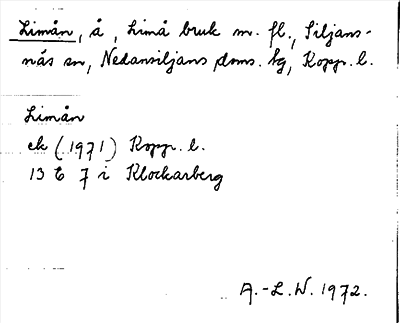 Limån, å, Limå bruk m. fl., Siljans-
näs sn, Nedansiljans doms. hg, Kopp. l.
Limån
ek (1971) Kopp. l.
13 E 7 i Klockarberg
A.-L.W. 1972.